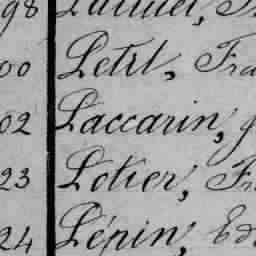 98
00 Letrl, Fra
02 Laccarin, J
23 Lotier, Fr
24 Lépin, Edo